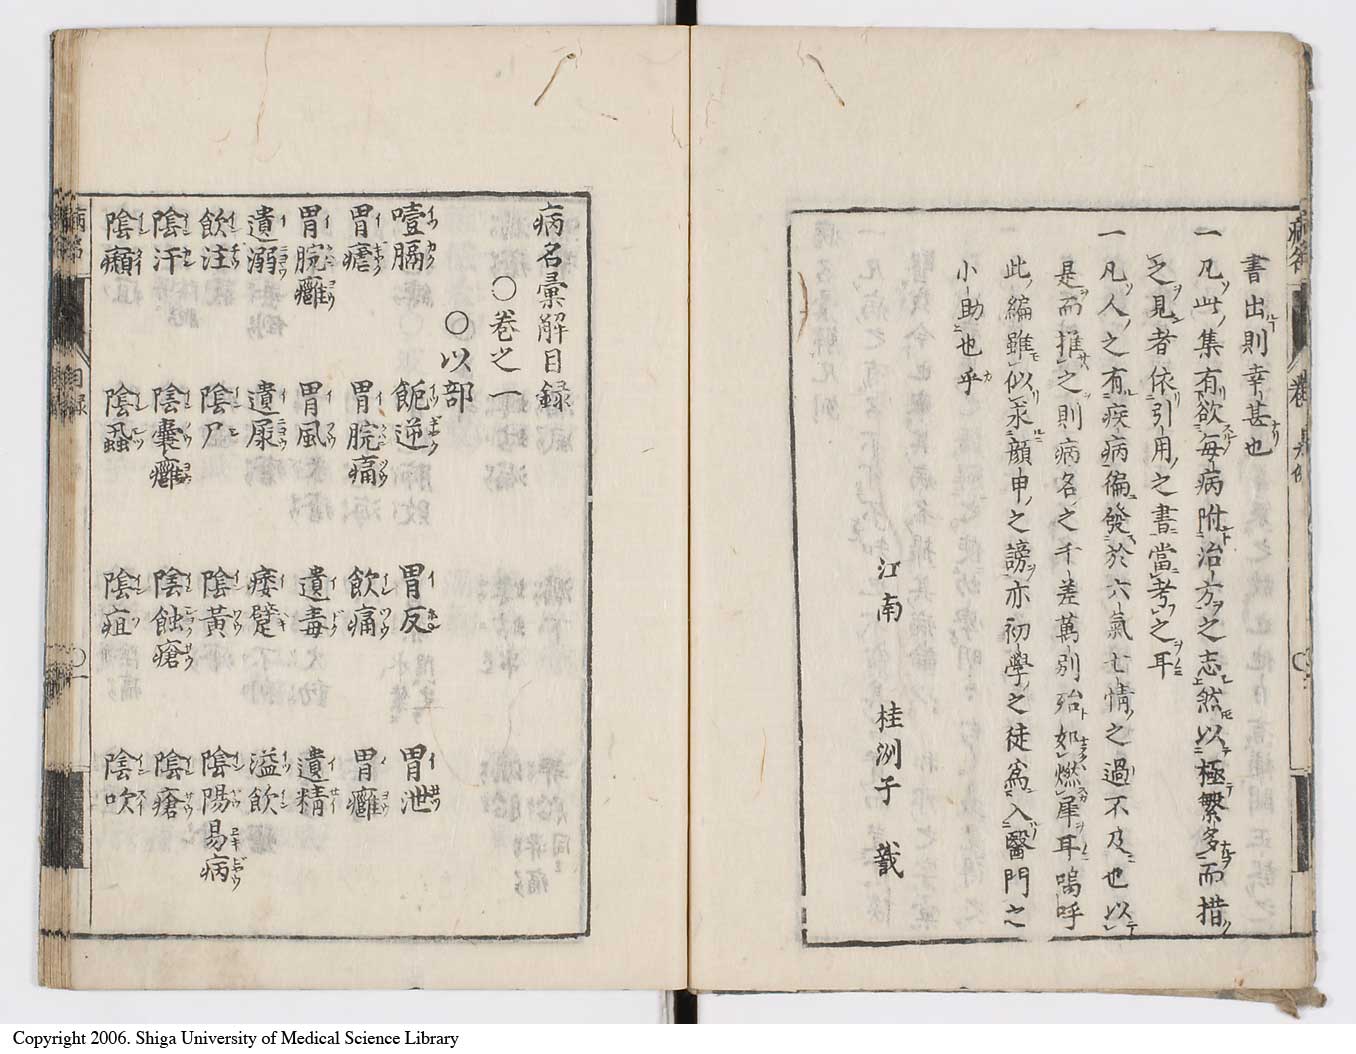 書出則幸甚也
一凡此集有欲每病附治方之志然以極繁多而措
之見者依引用之書當考之耳
一凡人之有疾病徧發於六氣七情之過不及也以
是而推之則病名之千差萬別殆如燃犀耳嗚呼
此編雖似汞顔申之謗亦初學之徒爲入醫門之
小助也乎
江南 桂洲子 識
病名彙解目録
○卷之一
○以部
噎膈 飽逆 胃反 胃泄
胃瘡 胃脘痛 飲痛 胃癰
胃脘癰 胃風 遺毒 遺精
遺溺 遺尿 痿躄 溢飲
飲注 陰尸 陰黃 陰陽易病
陰汗 陰囊癰 陰蝕瘡 陰瘡
陰癩 陰蝨 陰疽 陰吹
目録
○一
Copyright 2006. Shiga University of Medical Science Library